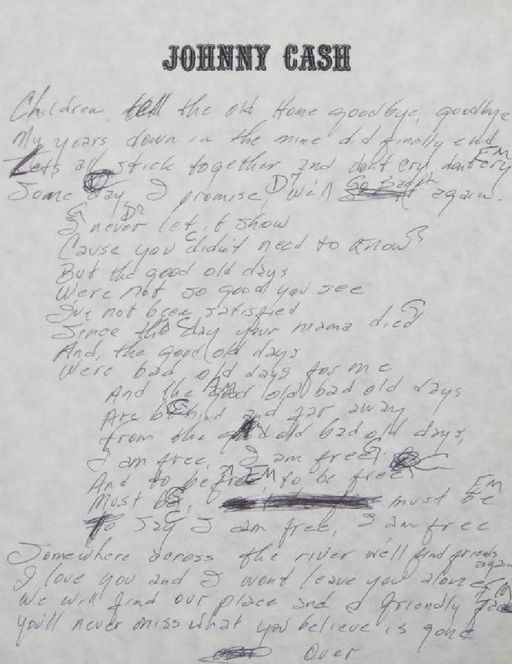 JOHNNY CASH
Children, tell the old Home goodbye, goodbye
My years down in the mine did finally end
Lets all stick together and dont cry, dont cry
Some day, I promise, will again.
I never let it show
Cause you didn't need to know
But the good old days
Were not so good you see
I've not been satisfied
Since the day your mama died
And, the good old days
Were bad old days for me
And the good old bad old days
Are behind and far away
from the old bad old days,
I am free, I am free
And to be free, to be free
Must be, must be
To say I am free, I am free
Somewhere across the river we'll find friends again
I love you and I wont leave you alone
We will find our place and a friendly
You'll never miss what you believe is gone
Over